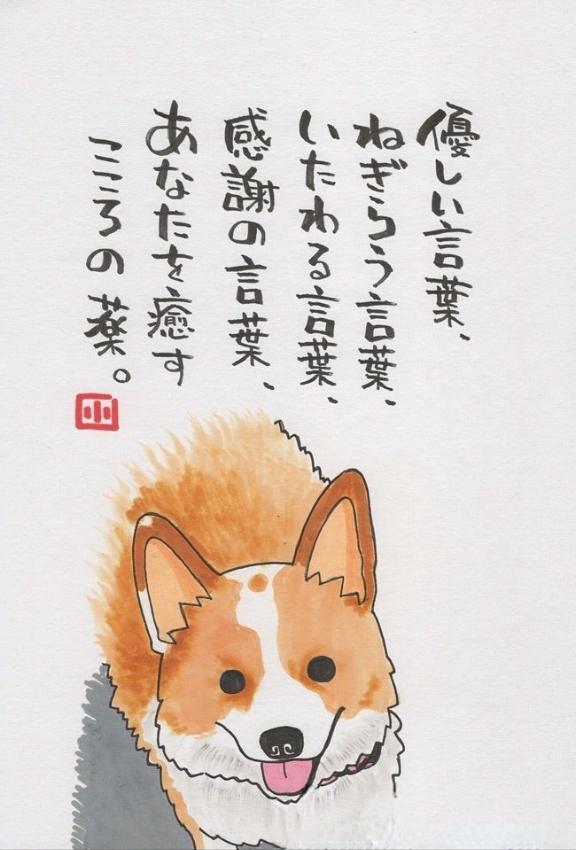 優しい言葉、
ねぎらう言葉、
いたわる言葉、
感謝の言葉、
あなたを癒す
こころの薬。
小